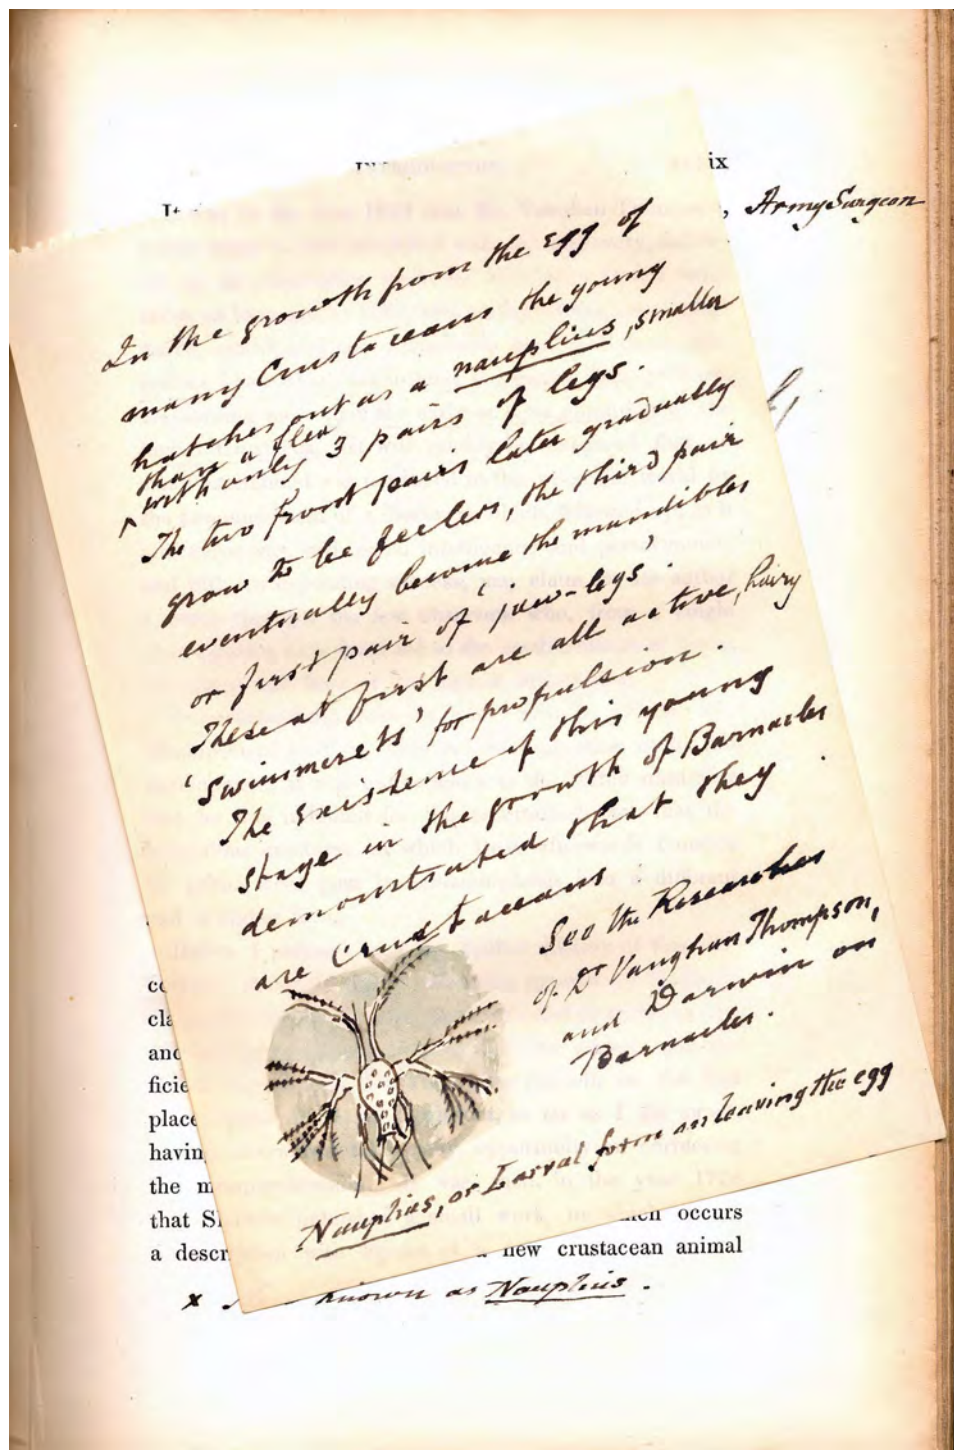 ix
, Army Surgeon
In the growth from the egg of
many Crustaceans the young
hatches out as a nauplius, smaller
than a flea
^ with only 3 pairs of legs.
The two front pairs later gradually
grow to be feelers, the third pair
eventually become the mandibles
or first pair of 'jaw-legs'.
These at first are all active, hairy
'Swimmerets' for propulsion.
The existence of this young
stage in the growth of Barnacles
demonstrated that they
are Crustaceans.
See the Researches
of Dr Vaughan Thompson,
and Darwin on
Barnacles.
Nauplius, or Larval form on leaving the egg
cla
and
ficie
place
havin
the m
that S
occurs
a descr new crustacean animal
x known as Nauplius.